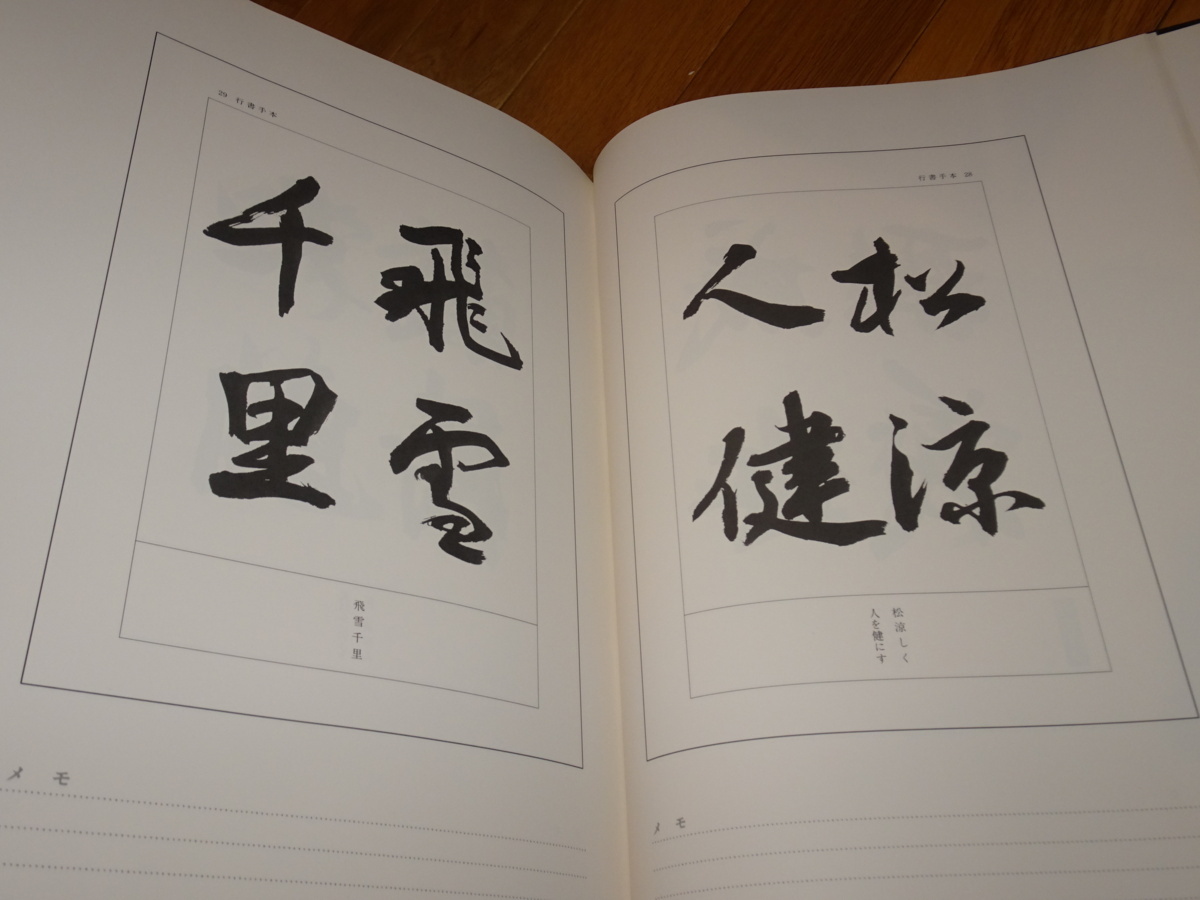 行書手本 28
松涼
人健
松涼しく
人を健にす
メモ
29 行書手本
飛雪
千里
飛雪千里
メモ